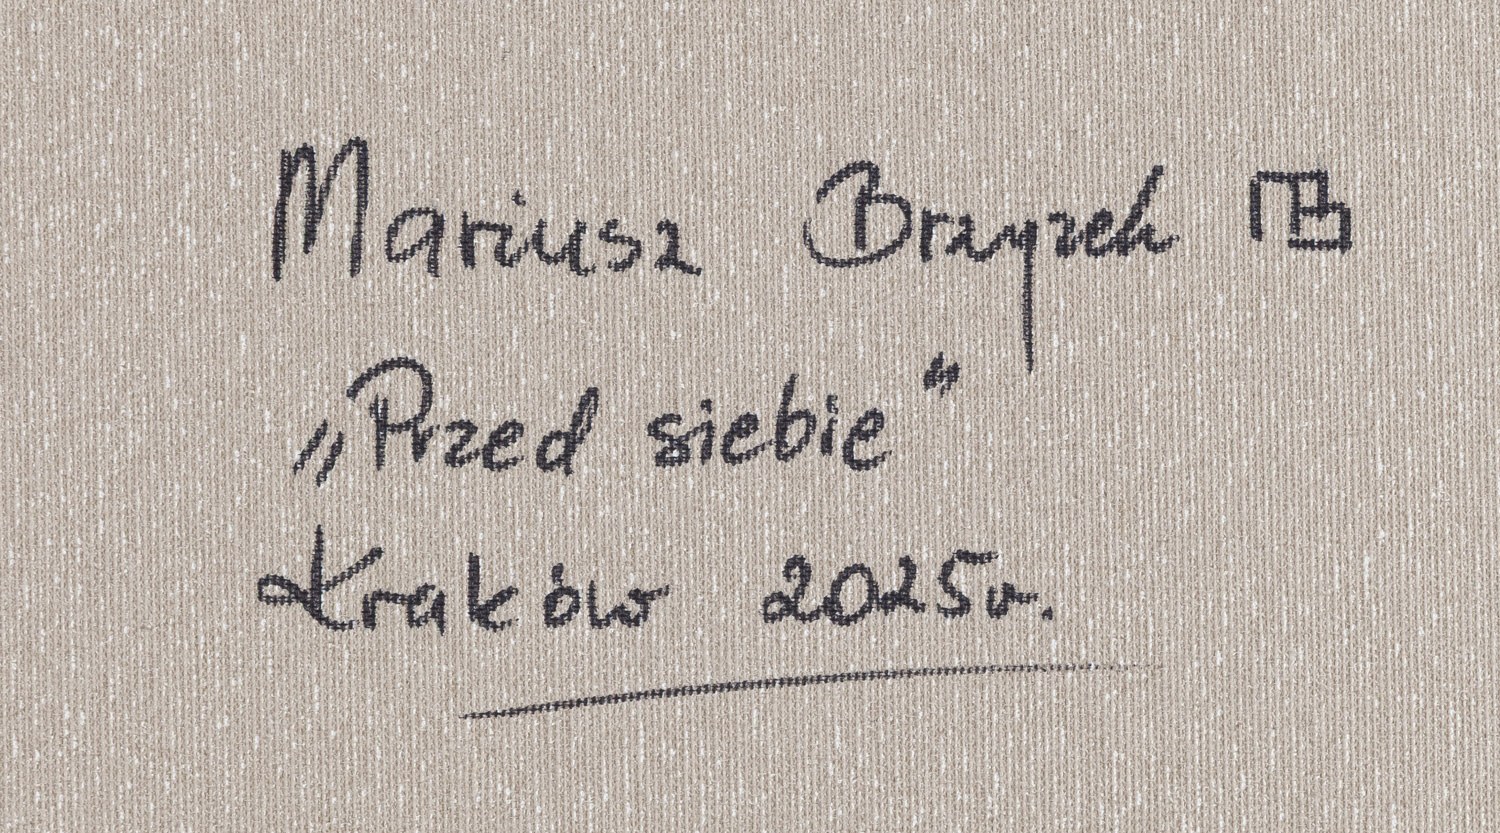 Mariusz Brzyzek MB
„Przed siebie"
Kraków 2025r.